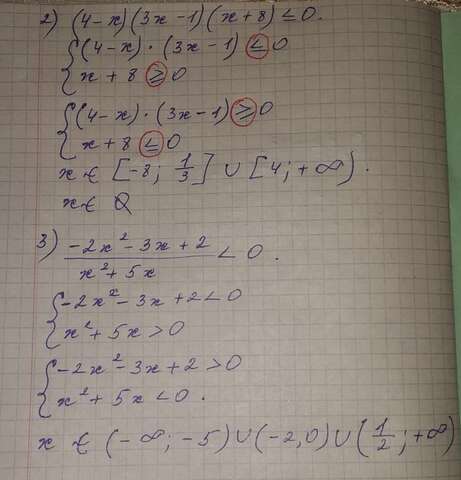 2) (4-x)(3x-1)(x+8) ≤ 0.
{ (4-x)·(3x-1) ≤ 0
x+8 ≥ 0
{ (4-x)·(3x-1) ≥ 0
x+8 ≤ 0
x ∈ [-8; 1/3] ∪ [4; +∞).
x ∈ Q
3) (-2x²-3x+2)/(x²+5x) < 0.
{ -2x²-3x+2 < 0
x²+5x > 0
{ -2x²-3x+2 > 0
x²+5x < 0.
x ∈ (-∞; -5) ∪ (-2,0) ∪ (1/2; +∞)